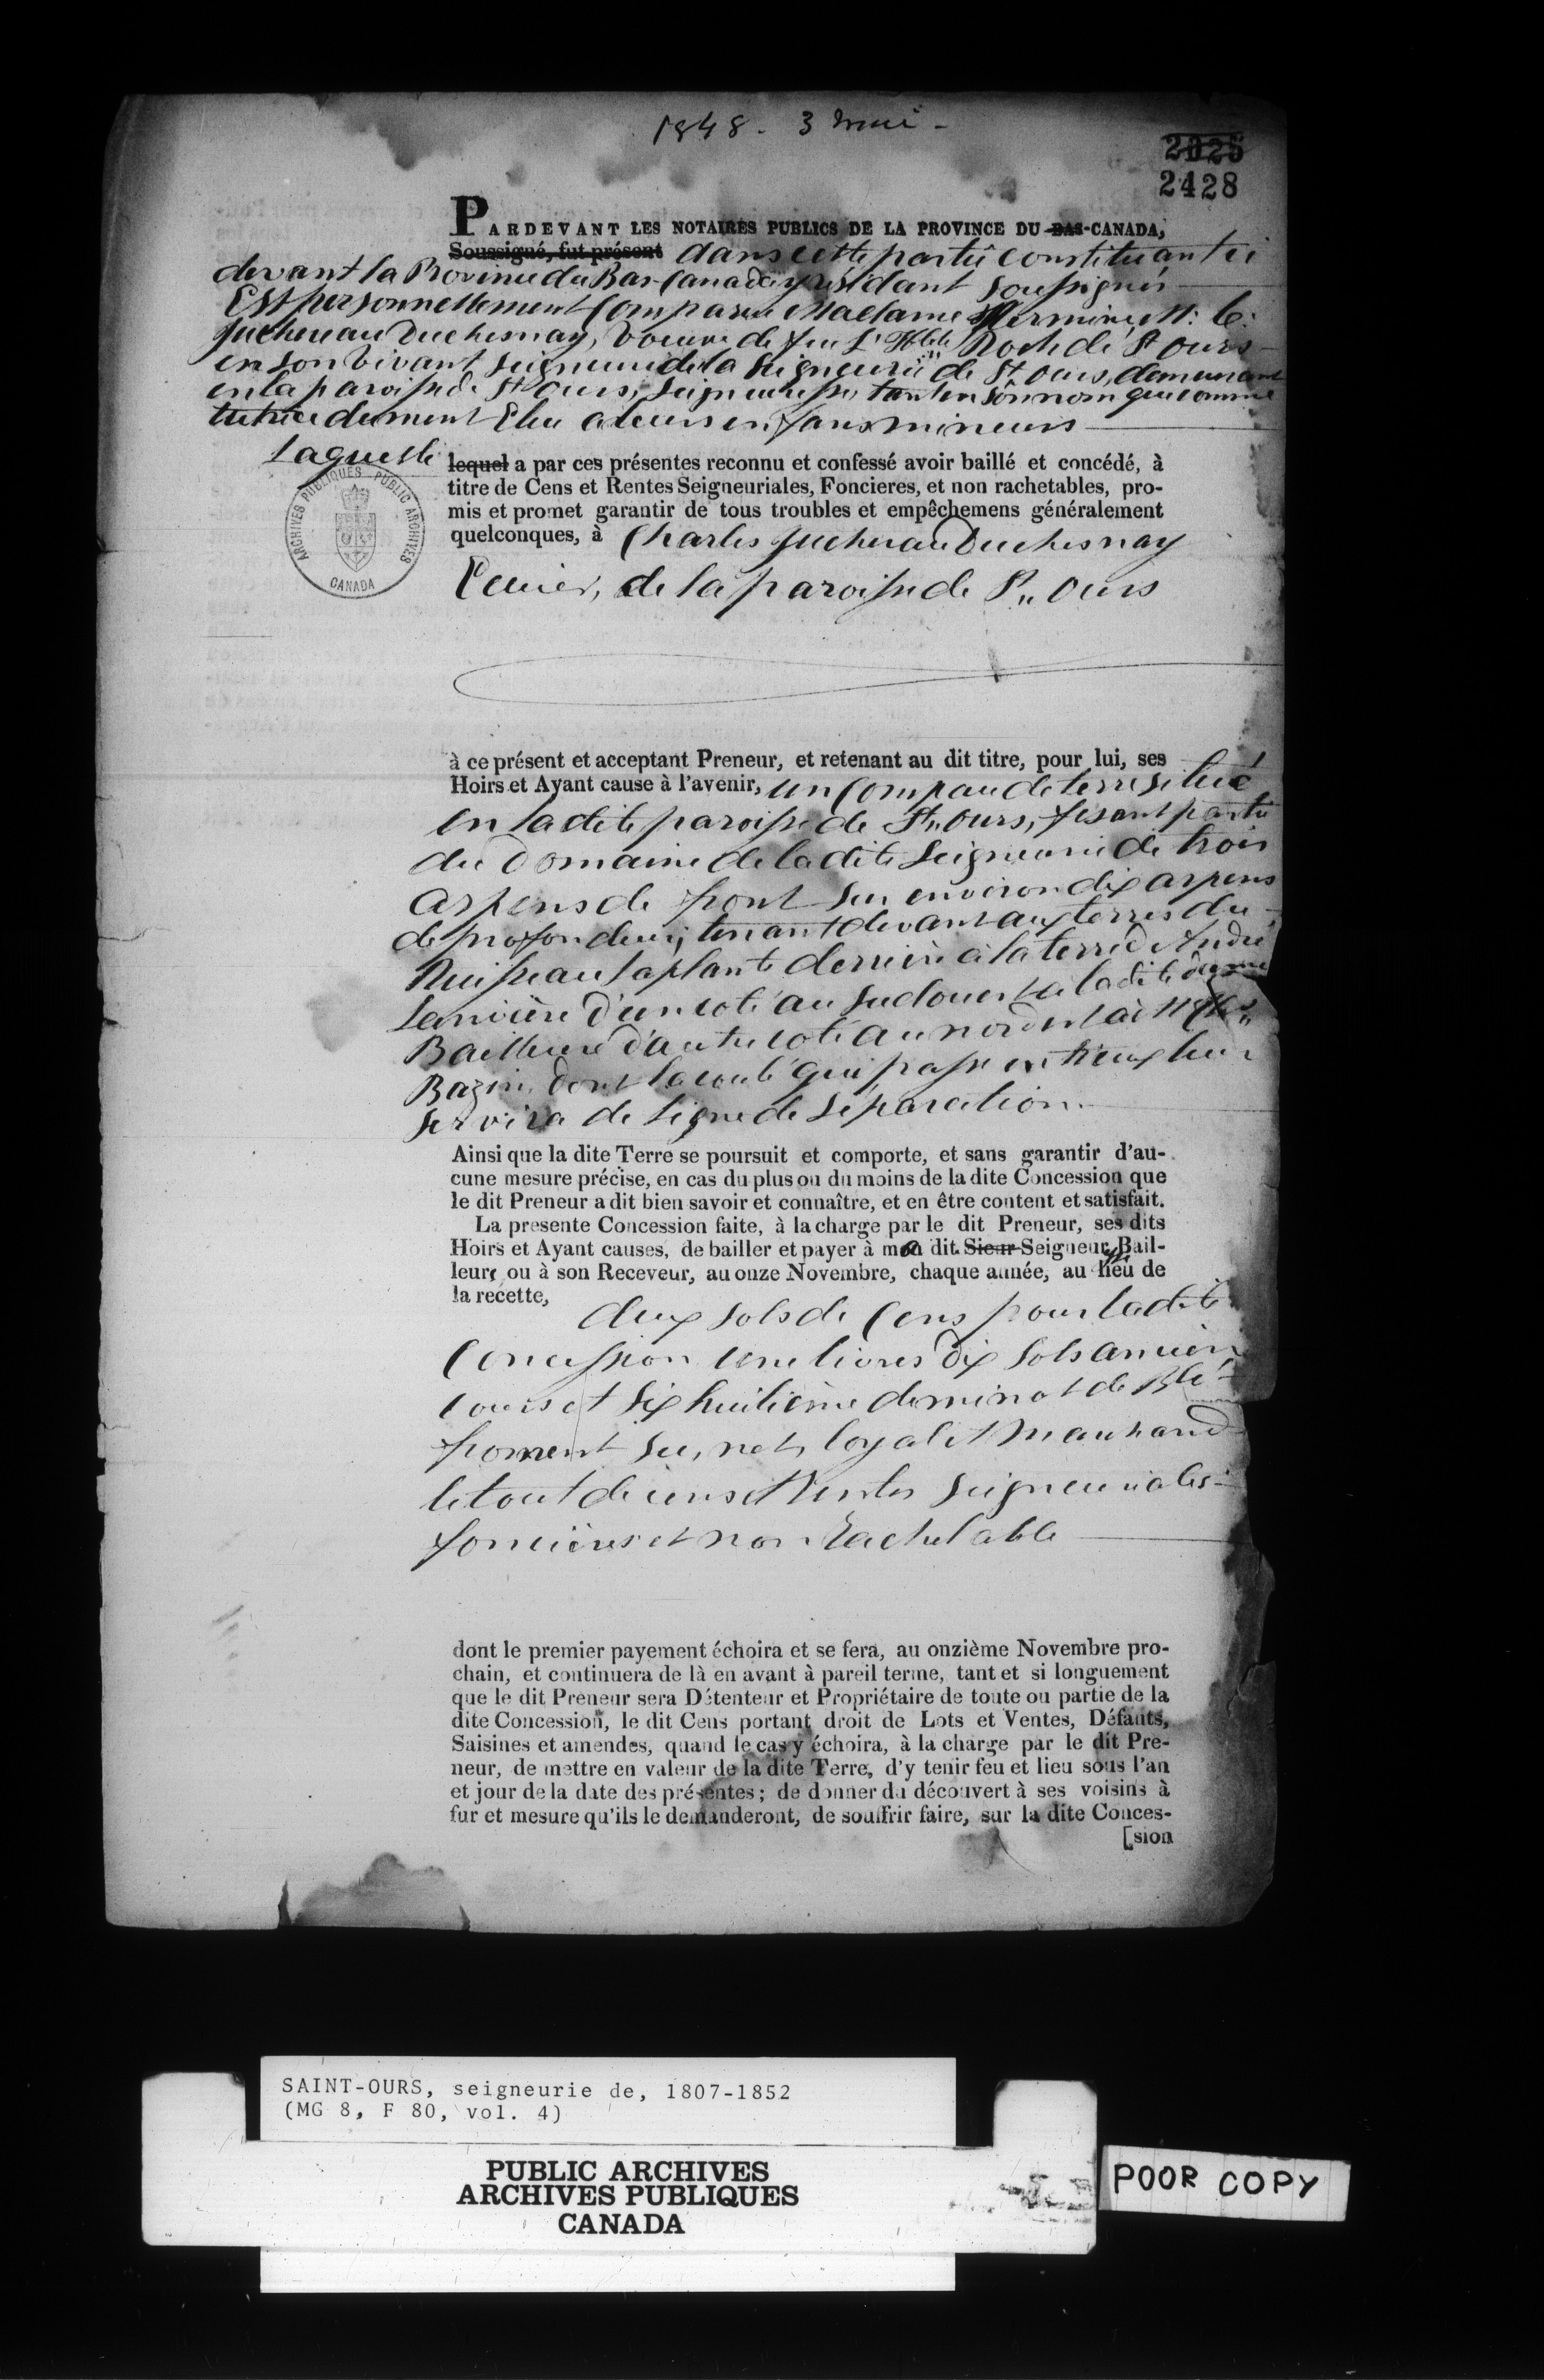 1848 - 3 mai -
2025
2428
PARDEVANT LES NOTAIRES PUBLICS DE LA PROVINCE DU BAS-CANADA,
Soussigné, fut présent dans cette partie constituant ci
devant la Province du Bas-Canada y résidant soussignés
Est personnellement Comparue Madame Hermine M: C:
Juchereau Duchesnay, Veuve de feu L'Hble Roch de St Ours
en son vivant Seigneur de la Seigneurie de St Ours, demeurant
en la paroisse de St Ours, Seigneuresse, tant en son nom que comme
tutrice dument Elue a leurs enfans mineurs
Laquelle lequel a par ces présentes reconnu et confessé avoir baillé et concédé, à
titre de Cens et Rentes Seigneuriales, Foncieres, et non rachetables, pro-
mis et promet garantir de tous troubles et empêchemens généralement
quelconques, à Charles Juchereau Duchesnay
Ecuier, de la paroisse de St Ours
ARCHIVES PUBLIQUES PUBLIC ARCHIVES
CANADA
à ce présent et acceptant Preneur, et retenant au dit titre, pour lui, ses
Hoirs et Ayant cause à l'avenir, un Compau de terre situé
en la dite paroisse de St Ours, fesant partie
du Domaine de la dite Seigneurie de trois
arpens de front sur environ dix arpens
de profondeur; tenant devant aux terres du
Ruisseau Laplante derrière à la terre d'André
Larivière d'un coté au Sudouest à la dite dame
Bailleure d'autre coté au nordest à
Bazin, dont la coulé qui passe entreux leur
servira de ligne de séparation.
Ainsi que la dite Terre se poursuit et comporte, et sans garantir d'au-
cune mesure précise, en cas du plus ou du moins de la dite Concession que
le dit Preneur a dit bien savoir et connaître, et en être content et satisfait.
La presente Concession faite, à la charge par le dit Preneur, ses dits
Hoirs et Ayant causes, de bailler et payer à ma dit Sieur Seigneuresse Bail-
leure ou à son Receveur, au onze Novembre, chaque année, au lieu de
la recette, deux sols de Cens pour la dite
Concession une livres dix sols ancien
cours et six huitième de minot de Blé
froment sec, net, loyal et marchand
le tout de cens et Rentes Seigneuriales
foncières et non Rachetable
dont le premier payement échoira et se fera, au onzième Novembre pro-
chain, et continuera de là en avant à pareil terme, tant et si longuement
que le dit Preneur sera Détenteur et Propriétaire de toute ou partie de la
dite Concession, le dit Cens portant droit de Lots et Ventes, Défauts,
Saisines et amendes, quand le cas y échoira, à la charge par le dit Pre-
neur, de mettre en valeur de la dite Terre, d'y tenir feu et lieu sous l'an
et jour de la date des présentes; de donner du découvert à ses voisins à
fur et mesure qu'ils le demanderont, de souffrir faire, sur la dite Conces-
[sion
SAINT-OURS, seigneurie de, 1807-1852
(MG 8, F 80, vol. 4)
PUBLIC ARCHIVES
ARCHIVES PUBLIQUES
CANADA
POOR COPY